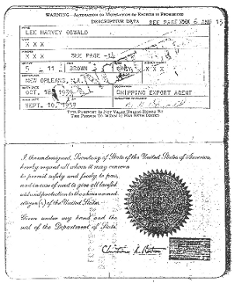 WARNING - ALTERATION OR MUTILATION OF PASSPORT IS PROHIBITED
DESCRIPTIVE DATA SEE PAGE 6 AND 15
LEE HARVEY OSWALD
X X X
X X X SEE PAGE -14
5 11 BROWN
NEW ORLEANS,
OCT. 18, 1939 SHIPPING EXPORT AGENT
SEPT. 10, 1959
THIS PASSPORT IS NOT VALID UNLESS SIGNED BY
THE PERSON TO WHOM IT HAS BEEN ISSUED
I the undersigned, Secretary of State of the United States of America,
hereby request all whom it may concern
to permit safely and freely to pass,
and in case of need to give all lawful
aid and protection to the above named
citizen(s) of the United States.
Given under my hand and the
seal of the Department of State.
Christian A. Herter